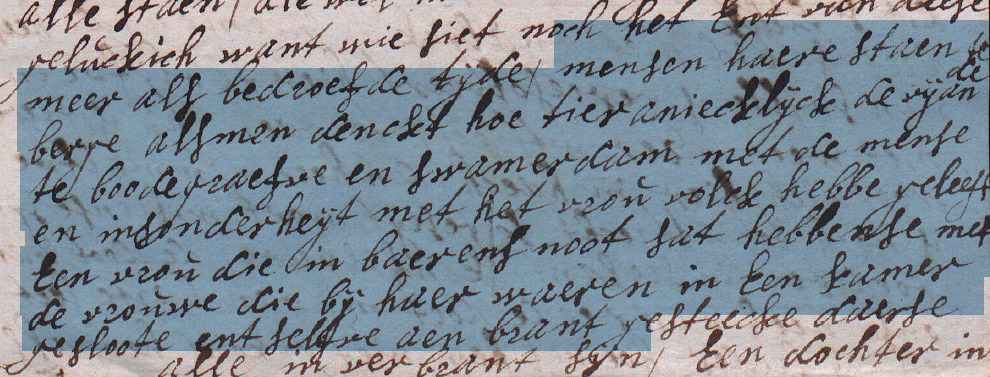 alle staen / die wel in
geluckich want wie siet noch het Ent van deese
meer als bedroefde tijde / mensen haere staen te
berge alsmen denckt hoe tieraniecklijck de vijande
te boodegraefve en swamerdam met de mense
en insonderheijt met het vrou volck hebbe geleeft
Een vrou die in baerens noot sat hebbense met
de vrouwe die bij haer waeren in Een kamer
gesloote ent selfve aen brant gesteecke daerse
alle in verbrant sijn / Een dochter in